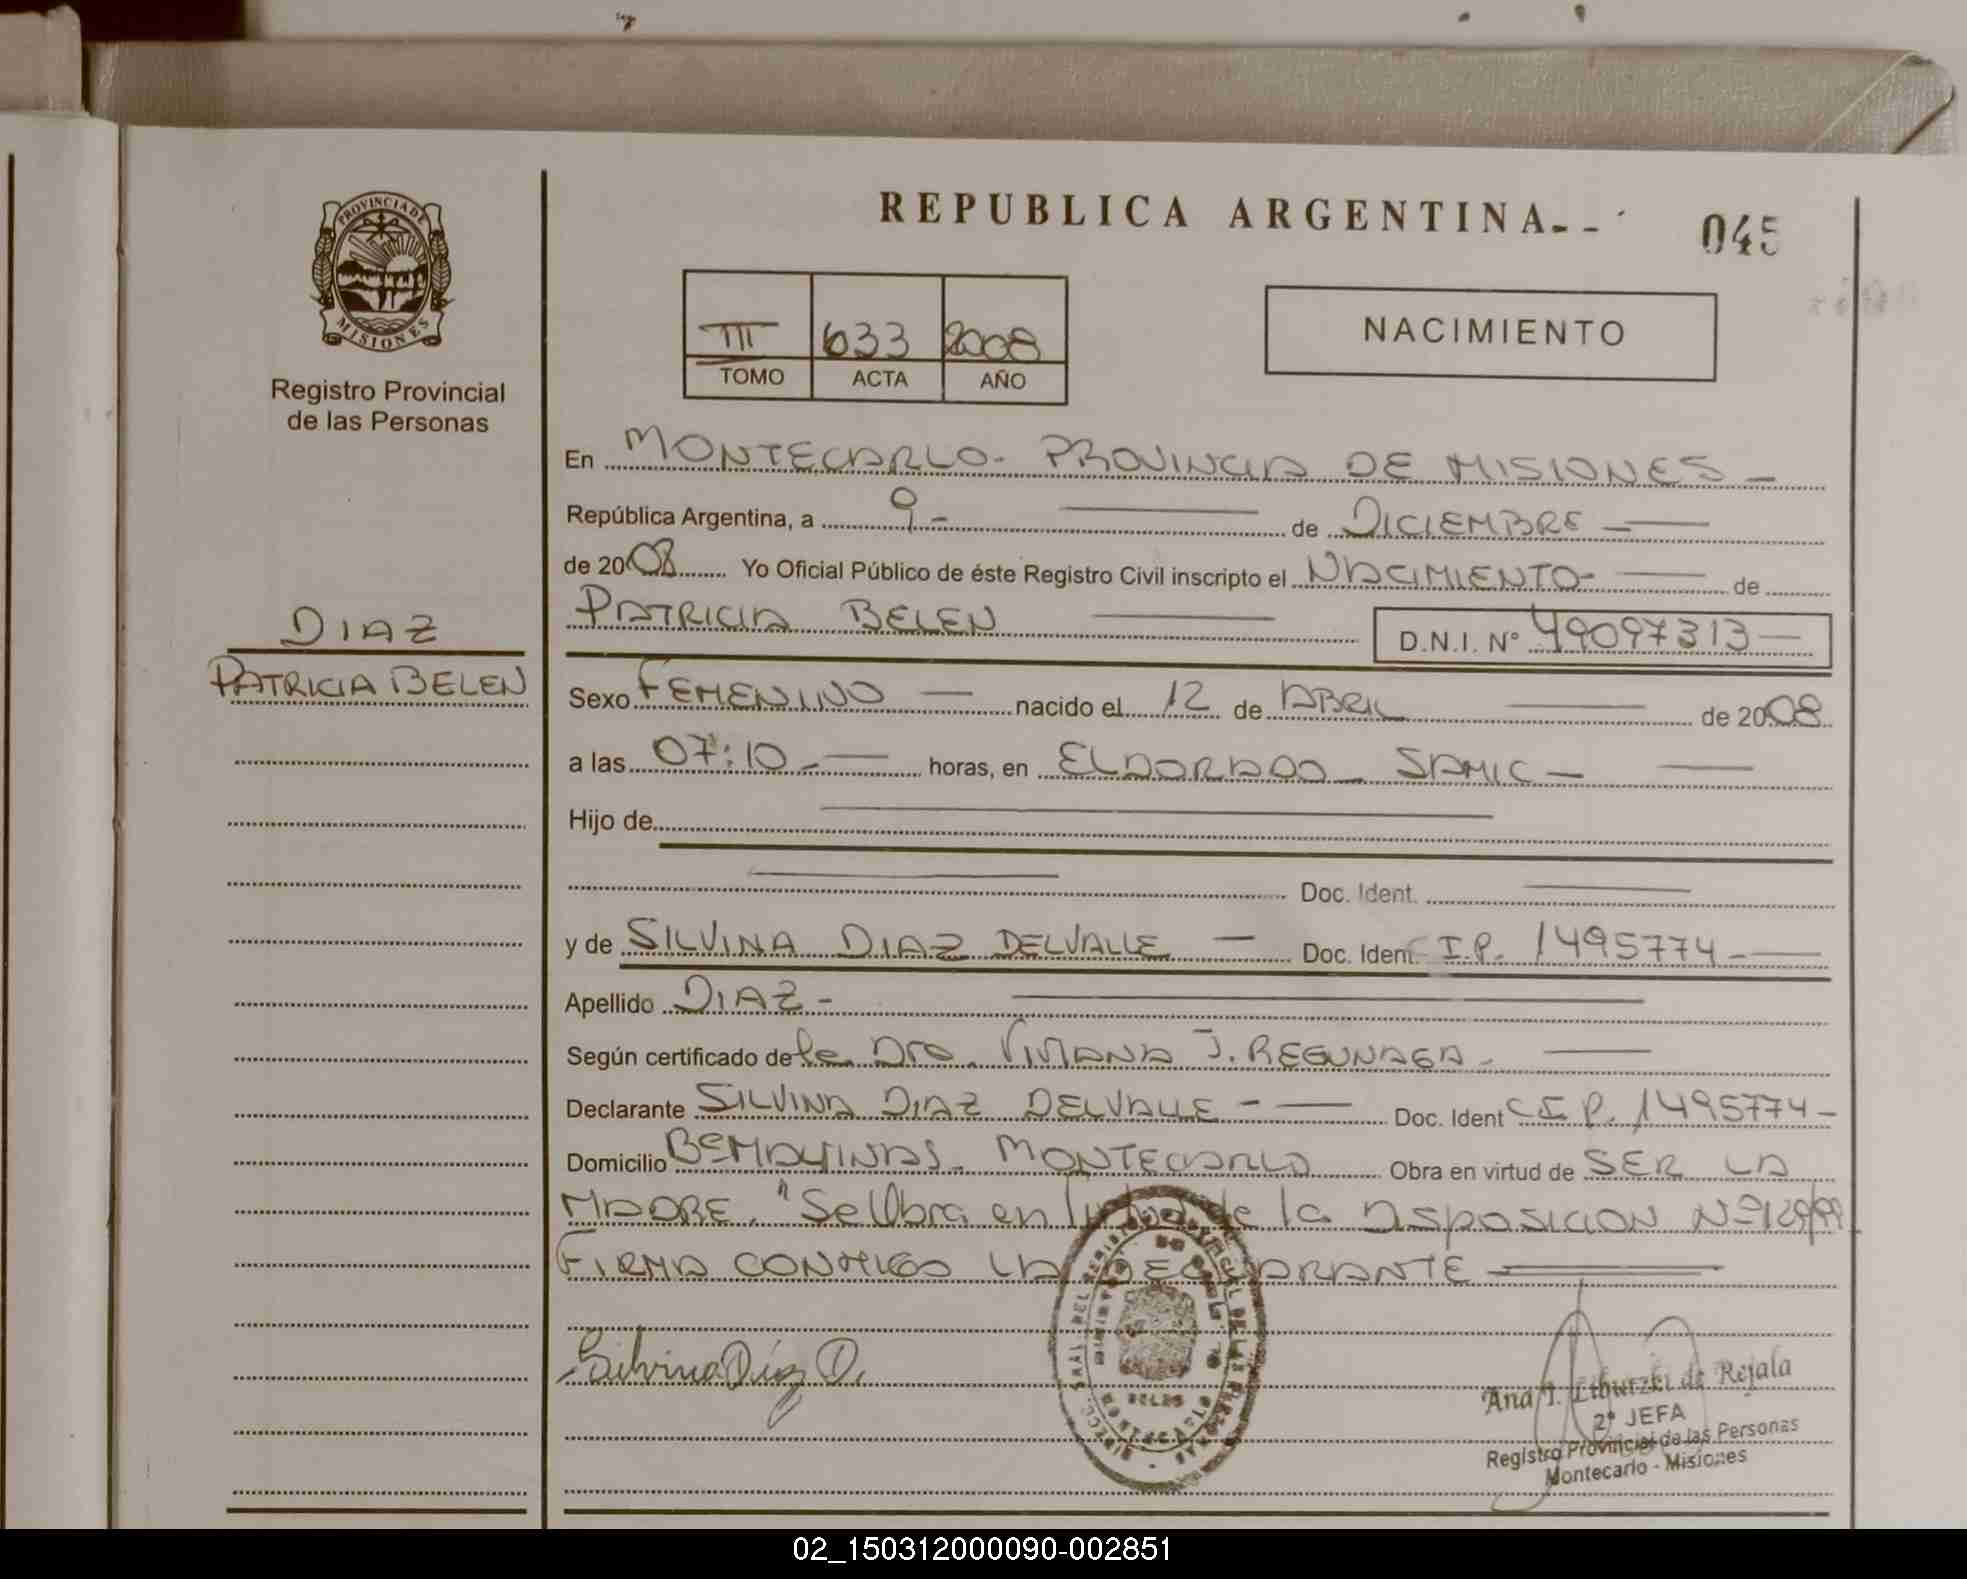 REPUBLICA ARGENTINA--
045
PROVINCIA DE
MISIONES
Registro Provincial
de las Personas
III 633 2008
TOMO ACTA AÑO
NACIMIENTO
En MONTECARLO- PROVINCIA DE MISIONES -
República Argentina, a 9- de DICIEMBRE -
de 2008 Yo Oficial Público de éste Registro Civil inscripto el NACIMIENTO- de
PATRICIA BELEN D.N.I. N° 49097313
DIAZ
PATRICIA BELEN
Sexo FEMENINO - nacido el 12 de ABRIL de 2008
a las 07:10 - horas, en ELDORADO - SAMIC -
Hijo de
Doc. Ident.
y de SILVINA DIAZ DELVALLE - Doc. Ident. I.P. 1495774 -
Apellido DIAZ -
Según certificado de la Dra. VIVIANA J. REGUNAGA -
Declarante SILVINA DIAZ DELVALLE - Doc. Ident C.I.P. 1495774 -
Domicilio Bº MALVINAS. MONTECARLO Obra en virtud de SER LA
MADRE. "Se Obra en de la DISPOSICION Nº 129/99
FIRMA CONMIGO LA DECLARANTE
Silvina Díaz D.
Ana I. de Rejala
2° JEFA
Registro Provincial de las Personas
Montecarlo - Misiones
02_150312000090-002851